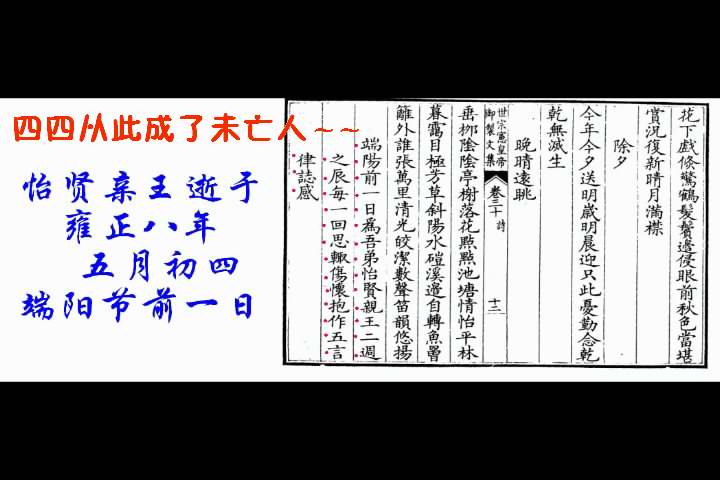 四四从此成了未亡人~~
怡贤亲王逝于
雍正八年
五月初四
端阳节前一日
花下戲倏驚鶴髮鬢邊侵眼前秋色當堪
賞況復新晴月滿襟
除夕
今年今夕送明歲明晨迎只此憂勤念乾
乾無滅生
晚晴遠眺
世宗憲皇帝
御製文集
卷三十
詩
十三
垂柳陰陰亭榭落花點點池塘情怡平林
暮靄目極芳草斜陽水碓溪邊自轉魚罾
籬外誰張萬里清光皎潔數聲笛韻悠揚
端陽前一日為吾弟怡賢親王二週
之辰每一回思輒傷懷抱作五言
律誌感